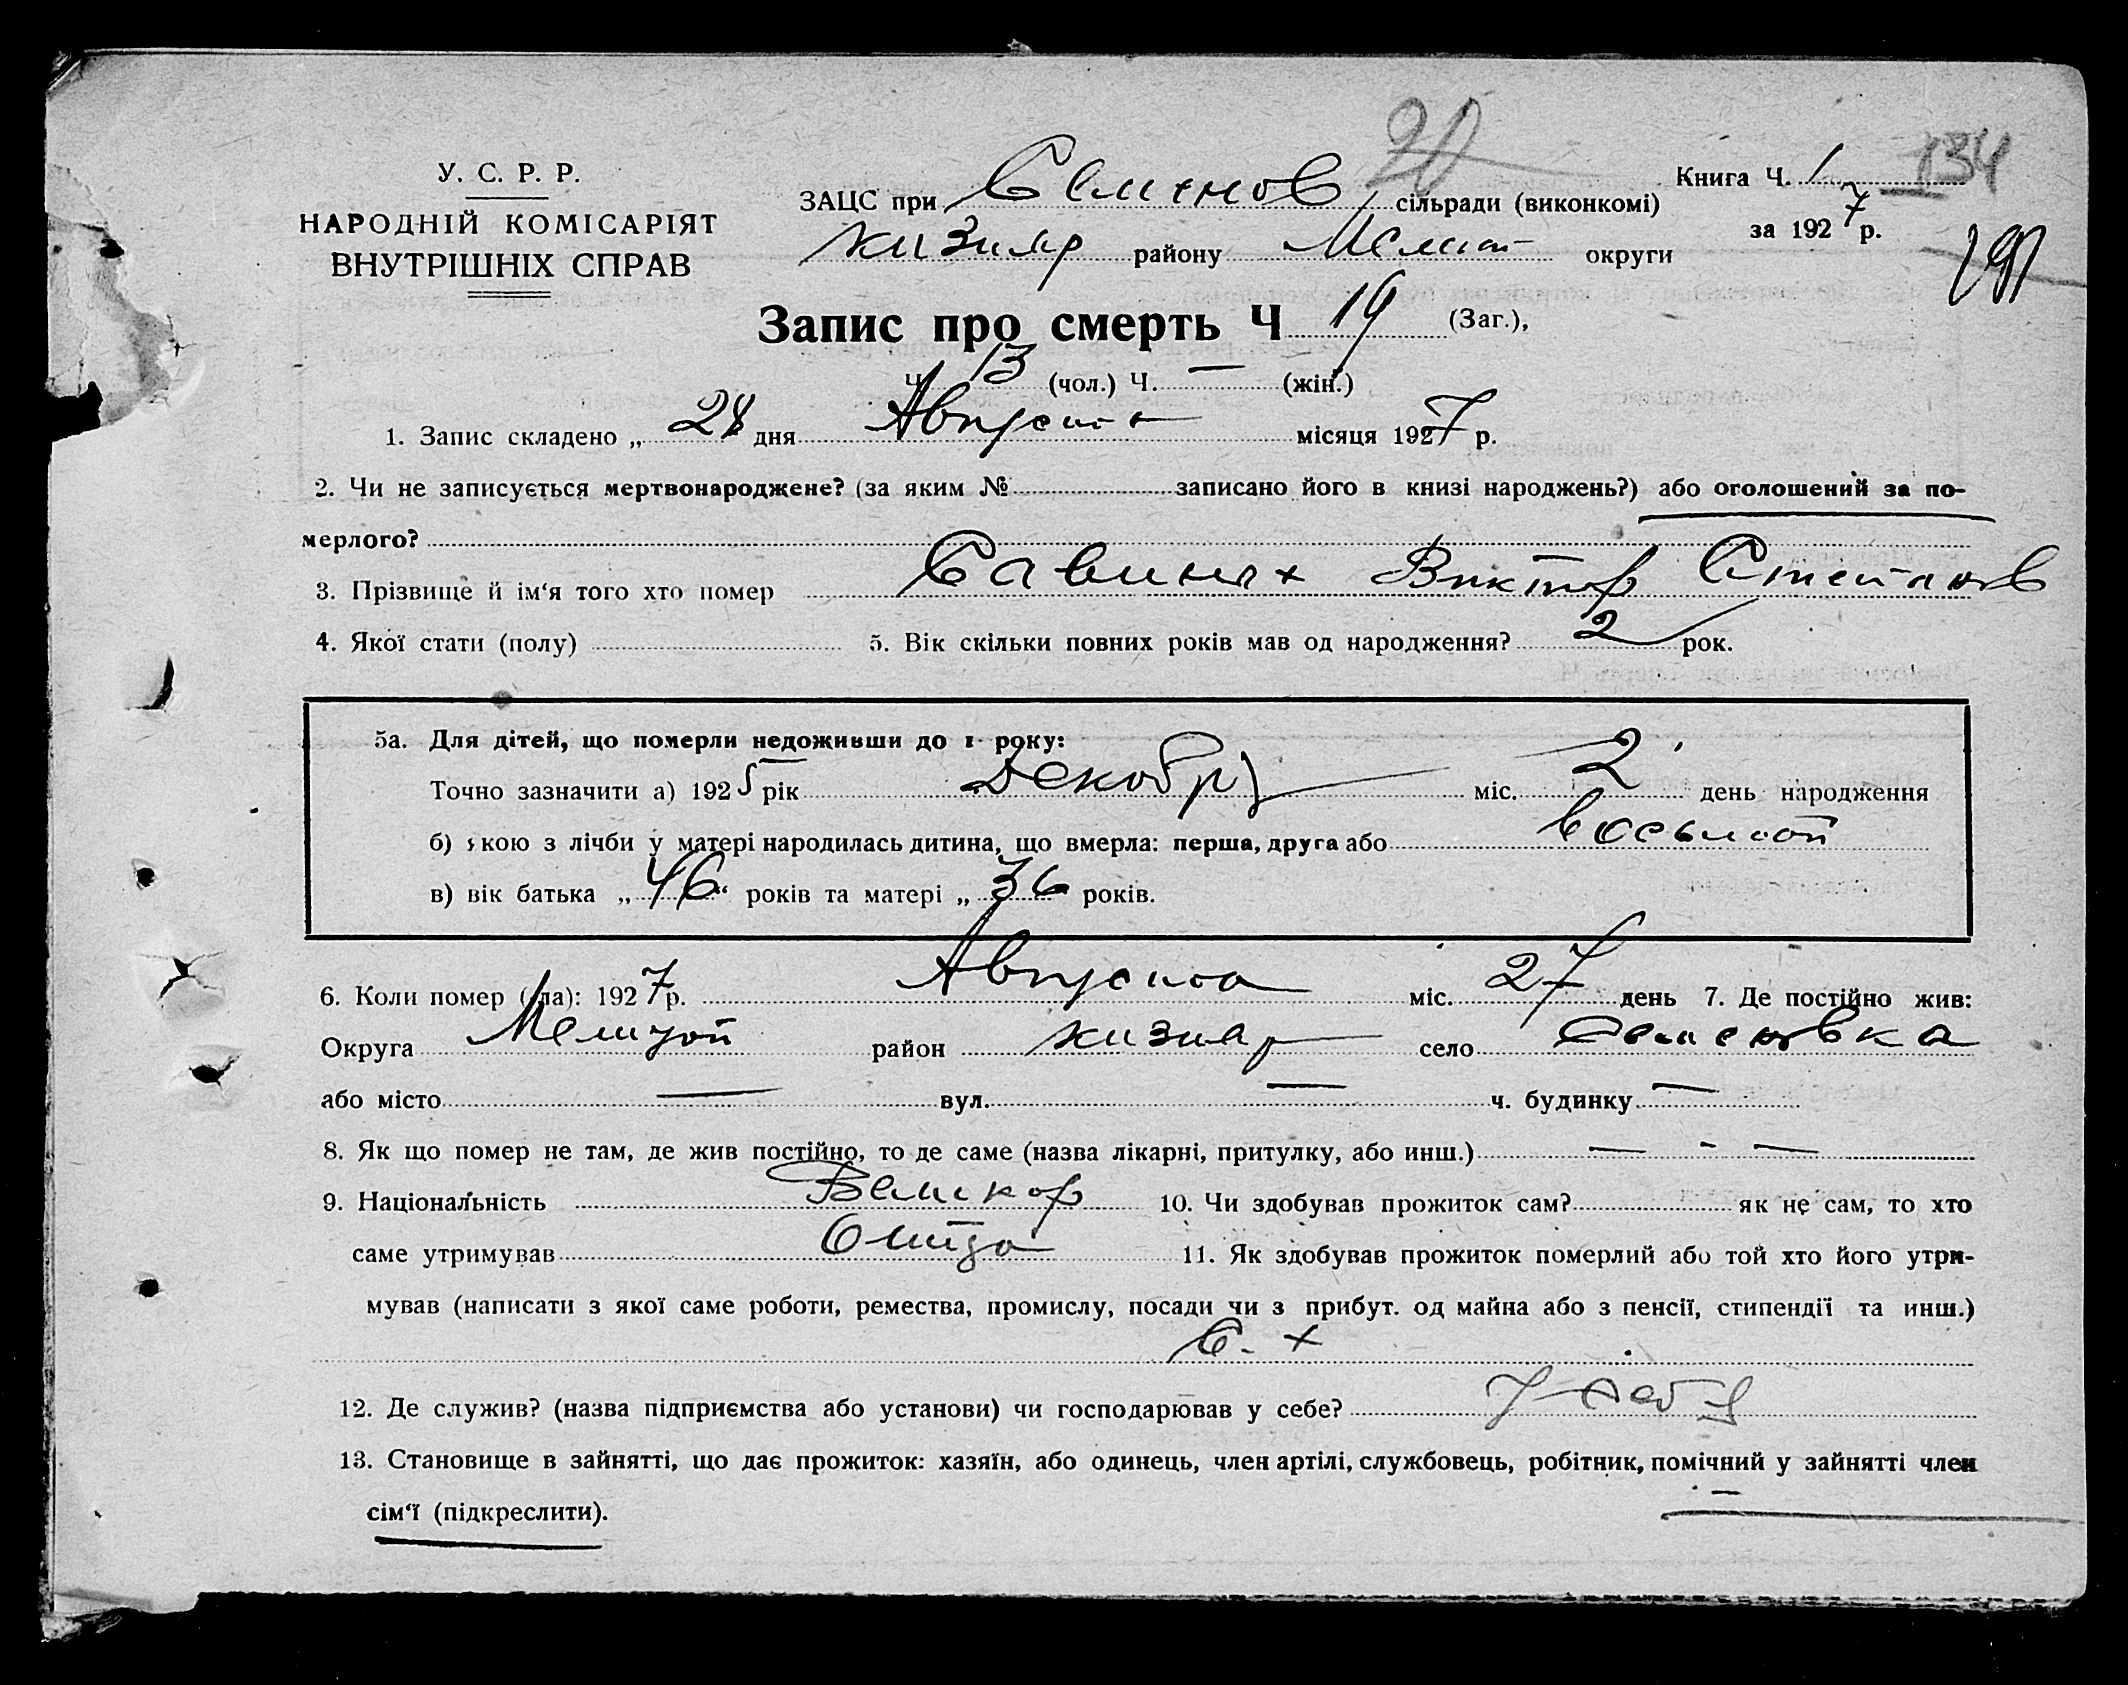 20
134
У. С. Р. Р.
НАРОДНІЙ КОМІСАРІЯТ
ВНУТРІШНІХ СПРАВ
ЗАЦС при Семенов сільради (виконкомі)
Книга Ч. 1
кизияр району Мелит округи
за 1927 р.
191
Запис про смерть Ч 19 (Заг.),
Ч 13 (чол.) Ч. — (жін.)
1. Запис складено „ 28 дня Августа місяця 1927 р.
2. Чи не записується мертвонароджене? (за яким № записано його в книзі народжень?) або оголошений за по-
мерлого?
3. Прізвище й ім‘я того хто помер Савиных Виктор Степанов
4. Якої стати (полу) 5. Вік скільки повних років мав од народження? 2 рок.
5а. Для дітей, що померли недоживши до 1 року:
Точно зазначити а) 1925 рік Декобря міс. 2 день народження
б) якою з лічби у матері народилась дитина, що вмерла: перша, друга або восьмой
в) вік батька „ 46 “ років та матері „ 36 років.
6. Коли помер (ла): 1927 р. Августа міс. 27 день 7. Де постійно жив:
Округа Мелитоп район кизияр село Семеновка
або місто — вул. — ч. будинку —
8. Як що помер не там, де жив постійно, то де саме (назва лікарні, притулку, або инш.) — - —
9. Національність Великор 10. Чи здобував прожиток сам? як не сам, то хто
саме утримував Отца 11. Як здобував прожиток померлий або той хто його утри-
мував (написати з якої саме роботи, ремества, промислу, посади чи з прибут. од майна або з пенсії, стипендії та инш.)
С. х
12. Де служив? (назва підприємства або установи) чи господарював у себе? У себя
13. Становище в зайнятті, що дає прожиток: хазяїн, або одинець, член артілі, службовець, робітник, помічний у зайнятті член
сім‘ї (підкреслити).